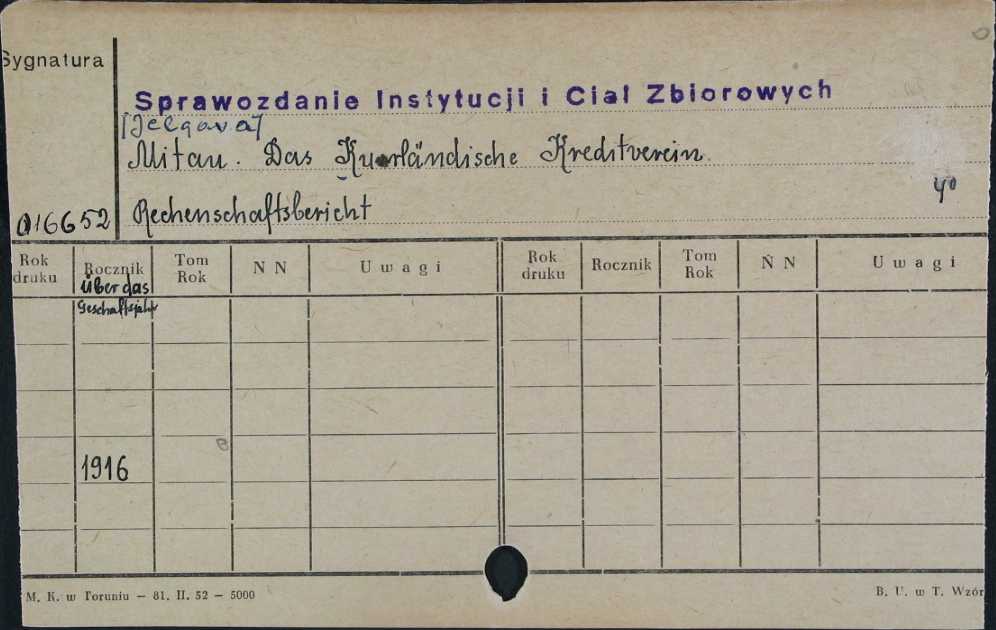 Sygnatura
Sprawozdanie Instytucji i Ciał Zbiorowych
[Jelgava]
Mitau. Das Kurländische Kreditverein.
40
016652 Rechenschaftsbericht
Rok druku Rocznik Tom Rok N N Uwagi Rok druku Rocznik Tom Rok N N Uwagi
über das
Geschäftsjahr
1916
M. K. w Toruniu — 81. II. 52 — 5000 B. U. w T. Wzór